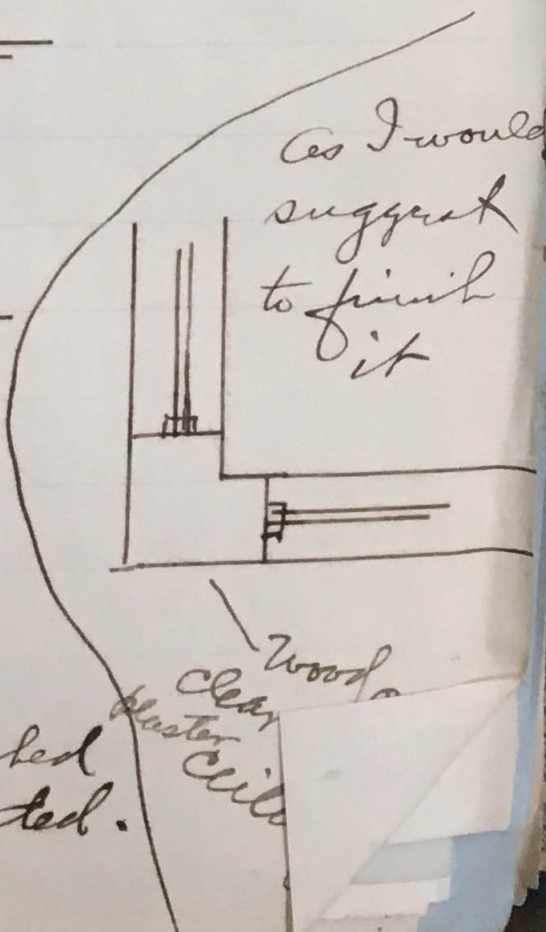 as I would
suggest
to finish
it
Wood
clear
plaster
ceil
hed
ted.